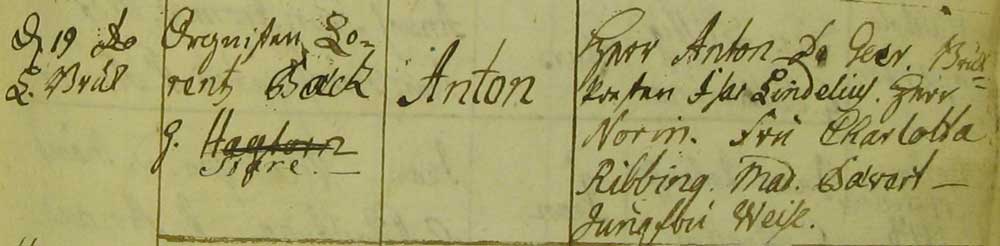 D. 19 do
L. Brük
Orgnisten Lo-
rentz Back
H. Hagtorn
Sofre.
Anton
Herr Anton De Geer. Brük-
Presten Isac Lindelius. Herr
Norin. Frü Charlotta
Ribbing. Mad. Sevart
Jungfrü Weise.